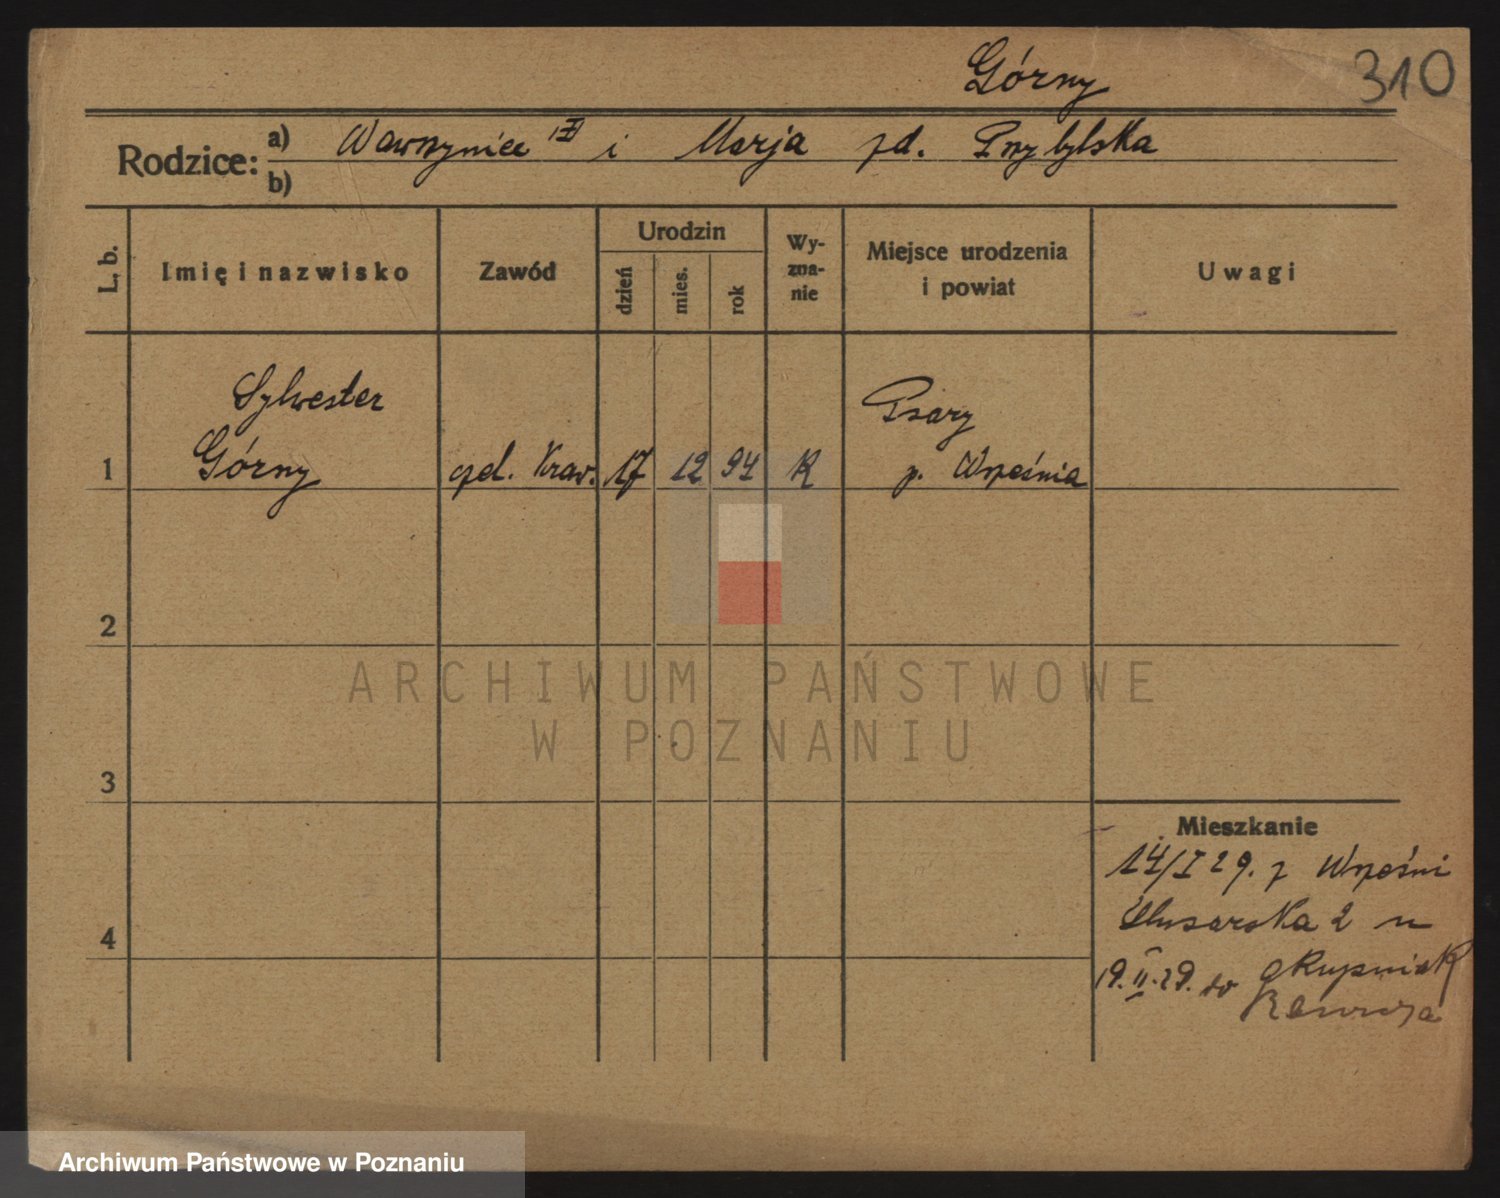 Górny
310
Rodzice: a) Wawrzyniec i Marja zd. Przybylska
b)
L. b. Imię i nazwisko Zawód Urodzin dzień mies. rok Wyznanie Miejsce urodzenia i powiat Uwagi
Sylwester Psary
1 Górny czel. Kraw. 17 12 94 K p. Września
2
ARCHIWUM PAŃSTWOWE
W POZNANIU
3
Mieszkanie
14/I 29. z Wrześni
4 Ślusarska 2 u
19.II.29. do Rawicza
Archiwum Państwowe w Poznaniu